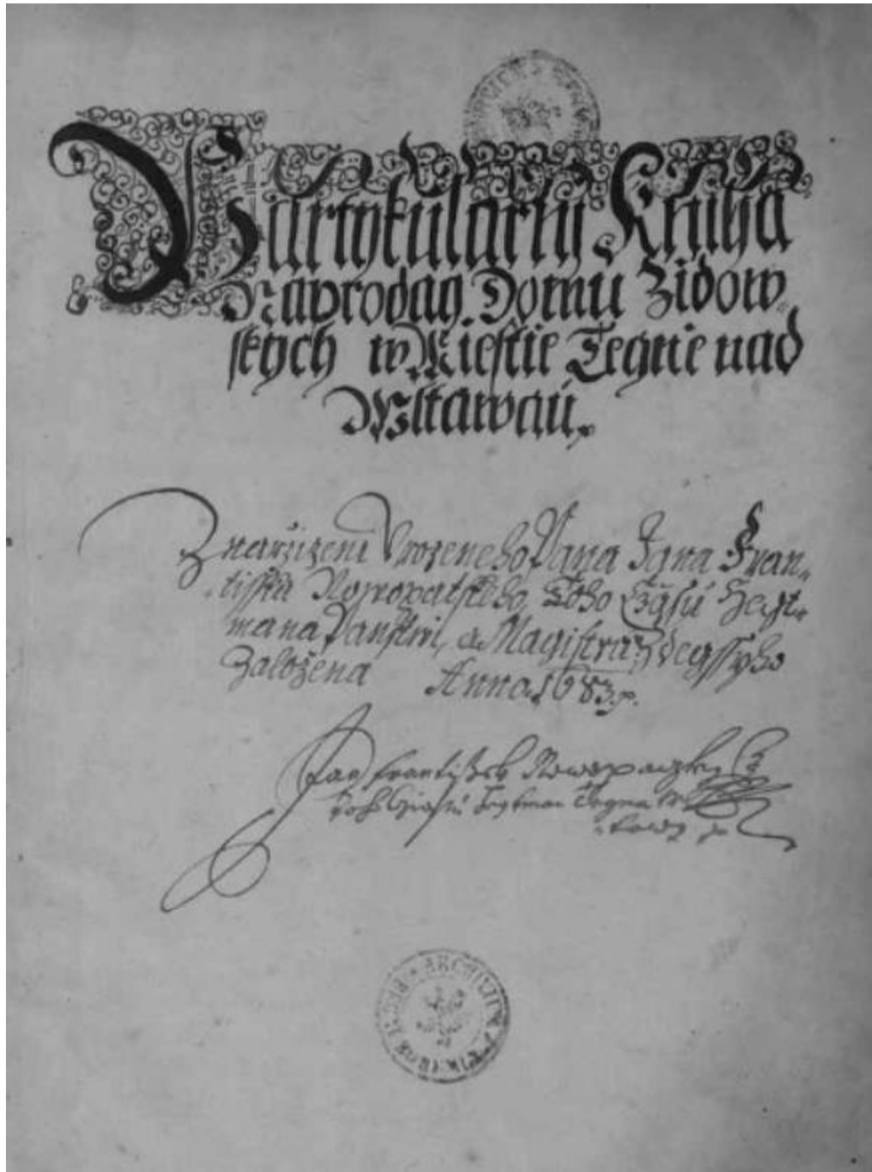 Partykularni Kniha
Naprodag Domu Zidow
skych w Miestie Tegnie nad
Wltawau.
Znarzizeni Urozeneho Pana Jana Fran-
tisska Nowopatskeho Toho Cžasu Hegt-
mana Panstwi, a Magistra Zdegssyho
Založena Anno 1683.
Jan Frantissek
ARCHIVUM